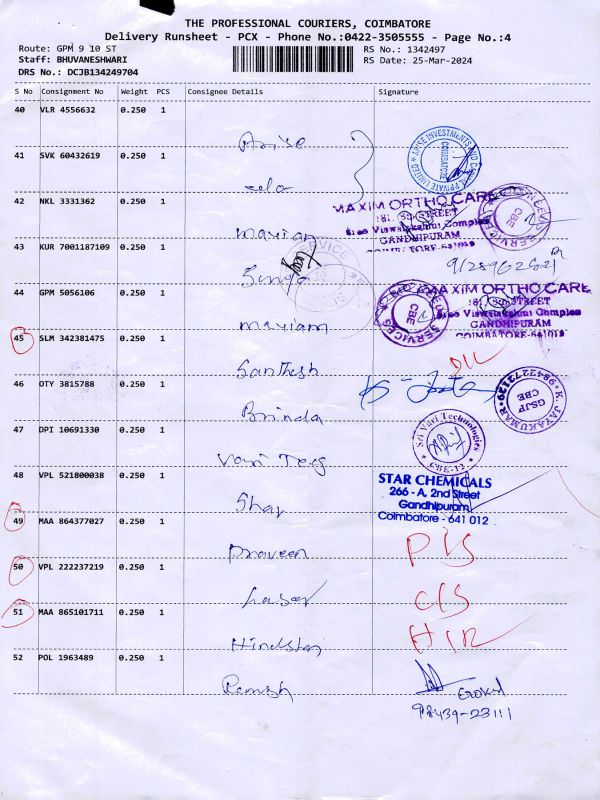 THE PROFESSIONAL COURIERS, COIMBATORE
Delivery Runsheet - PCX - Phone No.:0422-3505555 - Page No.:4
Route: GPM 9 10 ST
RS No.: 1342497
Staff: BHUVANESHWARI
RS Date: 25-Mar-2024
DRS No.: DCJB134249704
S No Consignment No Weight PCS Consignee Details Signature
40 VLR 4556632 0.250 1
Arise
ARISE INVESTMENTS AND PRIVATE LIMITED
COIMBATORE
41 SVK 60432619 0.250 1
42 NKL 3331362 0.250 1
MAXIM ORTHO CARE
181, STREET
Sree Viswalakshmi Complex
GANDHIPURAM
COIMBATORE-641019
CBE
43 KUR 7001187109 0.250 1
44 GPM 5056106 0.250 1
Mariam
MAXIM ORTHO CARE
STREET
Sree Viswalakshmi Complex
GANDHIPURAM
COIMBATORE-641019
CBE
45 SLM 342381475 0.250 1
Santhesh
D/L
46 OTY 3815788 0.250 1
Brinda
K. JAYAKUMAR
GSJP
CBE
47 DPI 10691330 0.250 1
Vari Teg
Sri Vari Technologies
CBE-12
48 VPL 521800038 0.250 1
Star
STAR CHEMICALS
266 - A, 2nd Street
Gandhipuram,
Coimbatore - 641 012
49 MAA 864377027 0.250 1
Praveen
50 VPL 222237219 0.250 1
C/S
51 MAA 865101711 0.250 1
Hindstan
52 POL 1963489 0.250 1
Ramesh
98439-23111